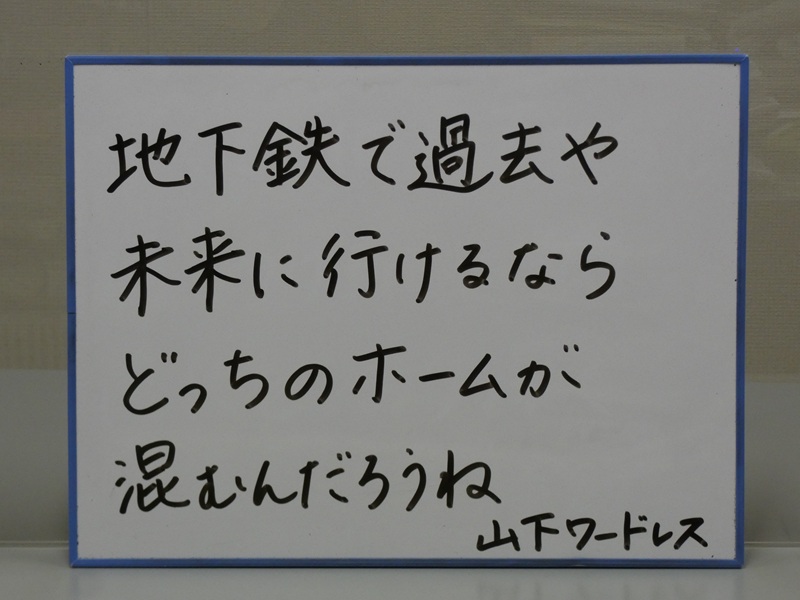 地下鉄で過去や
未来に行けるなら
どっちのホームが
混むんだろうね
山下ワードレス